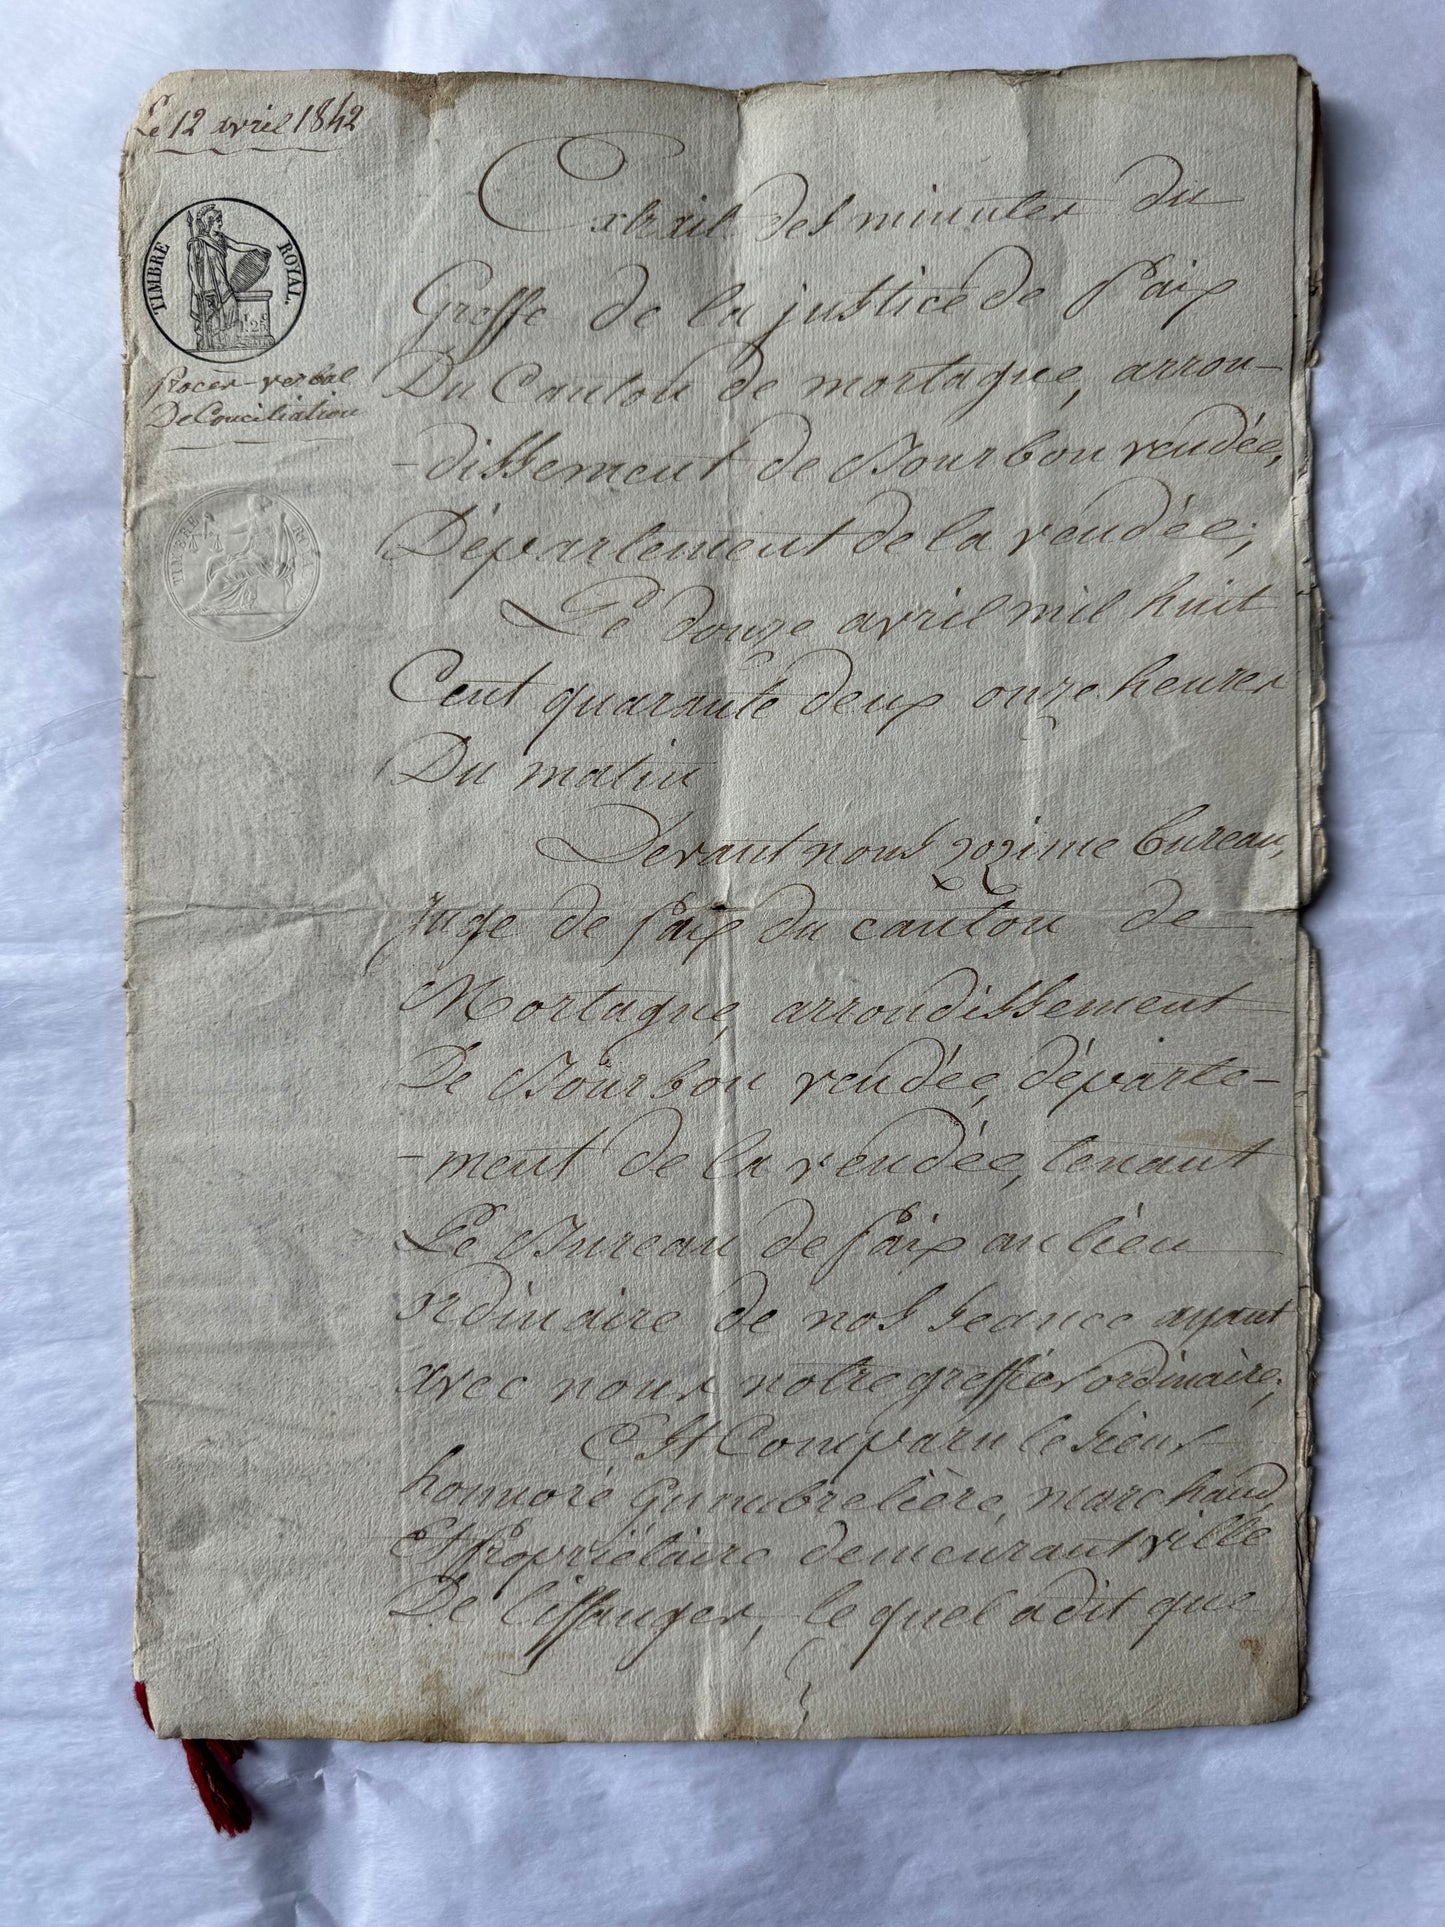 Le 12 avril 1842
TIMBRE ROYAL.
Procès-verbal
De Conciliation
TIMBRE
Extrait des minutes du
Greffe de la justice de Paix
Du Canton de mortagne, arron-
-dissement de Bourbon vendée,
Département de la vendée;
Le douze avril mil huit
Cent quarante deux onze heures
Du matin
Devant nous zozime Bureau,
Juge de paix du canton de
Mortagne, arrondissement
De Bourbon vendée, départe-
-ment de la vendée, tenant
Le Bureau de paix au lieu
ordinaire de nos seance ayant
avec nous notre greffier ordinaire;
Est Comparu le sieur
honnoré Gumbrelière, marchand,
Et Propriétaire demeurant ville
De tiffauges, le quel a dit que